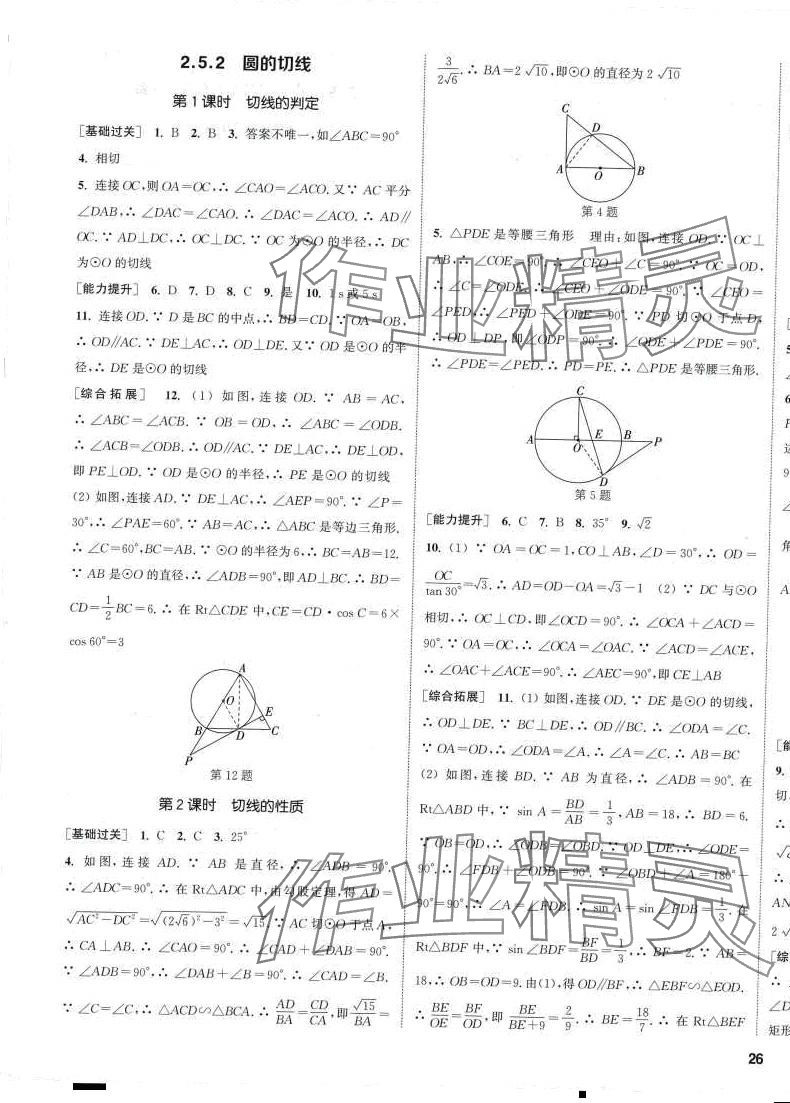 2.5.2 圆的切线
第1课时 切线的判定
[基础过关] 1. B 2. B 3. 答案不唯一,如∠ABC=90°
4. 相切
5. 连接OC,则OA=OC,∴∠CAO=∠ACO.又∵AC平分
∠DAB,∴∠DAC=∠CAO.∴∠DAC=∠ACO.∴AD∥
OC.∵AD⊥DC,∴OC⊥DC.∵OC为⊙O的半径,∴DC
为⊙O的切线
[能力提升] 6. D 7. D 8. C 9. 是 10. 1 s或5 s
11. 连接OD.∵D是BC的中点,∴BD=CD.∵OA=OB,
∴OD∥AC.∵DE⊥AC,∴OD⊥DE.又∵OD是⊙O的半
径,∴DE是⊙O的切线
[综合拓展] 12. (1) 如图,连接OD.∵AB=AC,
∴∠ABC=∠ACB.∵OB=OD,∴∠ABC=∠ODB.
∴∠ACB=∠ODB.∴OD∥AC.∵DE⊥AC,∴DE⊥OD,
即PE⊥OD.∵OD是⊙O的半径,∴PE是⊙O的切线
(2) 如图,连接AD.∵DE⊥AC,∴∠AEP=90°.∵∠P=
30°,∴∠PAE=60°.∵AB=AC,∴△ABC是等边三角形.
∴∠C=60°,BC=AB.∵⊙O的半径为6,∴BC=AB=12.
∵AB是⊙O的直径,∴∠ADB=90°,即AD⊥BC.∴BD=
CD=1/2BC=6.∴在Rt△CDE中,CE=CD·cos C=6×
cos 60°=3
A
O
E
B
D
C
P
第12题
第2课时 切线的性质
[基础过关] 1. C 2. C 3. 25°
4. 如图,连接AD.∵AB是直径,∴∠ADB=90°.
∴∠ADC=90°.∴在Rt△ADC中,由勾股定理,得AD=
√(AC²-DC²)=√((2√6)²-3²)=√15.∵AC切⊙O于点A,
∴CA⊥AB.∴∠CAO=90°.∴∠CAD+∠DAB=90°.
∵∠ADB=90°,∴∠DAB+∠B=90°.∴∠CAD=∠B.
∵∠C=∠C,∴△ACD∽△BCA.∴AD/BA=CD/CA,即√15/BA=
3/(2√6).∴BA=2√10,即⊙O的直径为2√10
C
D
A
O
B
第4题
5. △PDE是等腰三角形 理由:如图,连接OD.∵OC⊥
AB,∴∠COE=90°.∴∠CEO+∠C=90°.∵OC=OD,
∴∠C=∠ODE.∴∠CEO+∠ODE=90°.∵∠CEO=
∠PED,∴∠PED+∠ODE=90°.∵PD切⊙O于点D,
∴OD⊥DP,即∠ODP=90°.∴∠ODE+∠PDE=90°.
∴∠PDE=∠PED.∴PD=PE.∴△PDE是等腰三角形.
C
A
O
E
B
P
D
第5题
[能力提升] 6. C 7. B 8. 35° 9. √2
10. (1) ∵OA=OC=1,CO⊥AB,∠D=30°,∴OD=
OC/tan 30°=√3.∴AD=OD-OA=√3-1 (2) ∵DC与⊙O
相切,∴OC⊥CD,即∠OCD=90°.∴∠OCA+∠ACD=
90°.∵OA=OC,∴∠OCA=∠OAC.∵∠ACD=∠ACE,
∴∠OAC+∠ACE=90°.∴∠AEC=90°,即CE⊥AB
[综合拓展] 11. (1) 如图,连接OD.∵DE是⊙O的切线,
∴OD⊥DE.∵BC⊥DE,∴OD∥BC.∴∠ODA=∠C.
∵OA=OD,∴∠ODA=∠A.∴∠A=∠C.∴AB=BC
(2) 如图,连接BD.∵AB为直径,∴∠ADB=90°.在
Rt△ABD中,∵sin A=BD/AB=1/3,AB=18,∴BD=6.
∵OB=OD,∴∠ODB=∠OBD.∵OD⊥DE,∴∠ODE=
90°.∴∠FDB+∠ODB=90°.∵∠OBD+∠A=180°-
90°=90°,∴∠A=∠FDB.∴sin A=sin∠FDB=1/3.在
Rt△BDF中,∵sin∠BDF=BF/BD=1/3,∴BF=2.∵AB=
18,∴OB=OD=9.由(1),得OD∥BF,∴△EBF∽△EOD.
∴BE/OE=BF/OD,即BE/(BE+9)=2/9.∴BE=18/7.∴在Rt△BEF
26
作业精灵
作业精灵